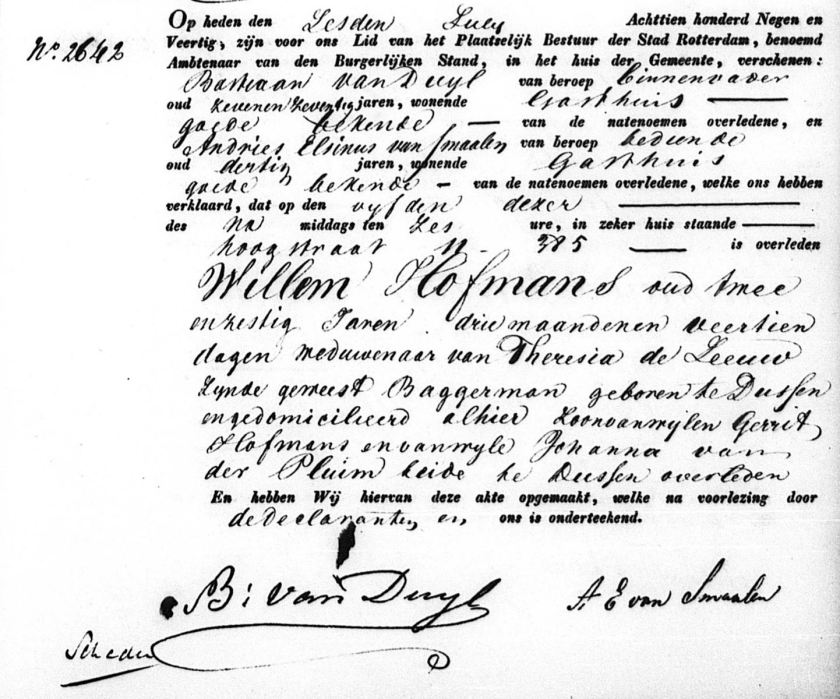 No. 2642
Op heden den Zesden July Achttien honderd Negen en
Veertig, zijn voor ons Lid van het Plaatselijk Bestuur der Stad Rotterdam, benoemd
Ambtenaar van den Burgerlijken Stand, in het huis der Gemeente, verschenen:
Bastiaan van Duyl van beroep binnenvader
oud zevenenzeventig jaren, wonende Gasthuis
goede bekende van de natenoemen overledene, en
Andries Elsinus van Smaalen van beroep bediende
oud dertig jaren, wonende Gasthuis
goede bekende – van de natenoemen overledene, welke ons hebben
verklaard, dat op den vyfden dezer
des Na middags ten Zes ure, in zeker huis staande
hoogstraat N. 385 is overleden
Willem Hofmans oud twee
enzestig Jaren drie maanden en veertien
dagen weduwenaar van Theresia de Leeuw
zynde geweest Baggerman geboren te Dussen
en gedomicilieerd alhier Zoon van wylen Gerrit
Hofmans en van wyle Johanna van
der Pluim beide te Dussen overleden
En hebben Wij hiervan deze akte opgemaakt, welke na voorlezing door
de Declaranten en ons is onderteekend.
B: van Duyl
A E van Smaalen